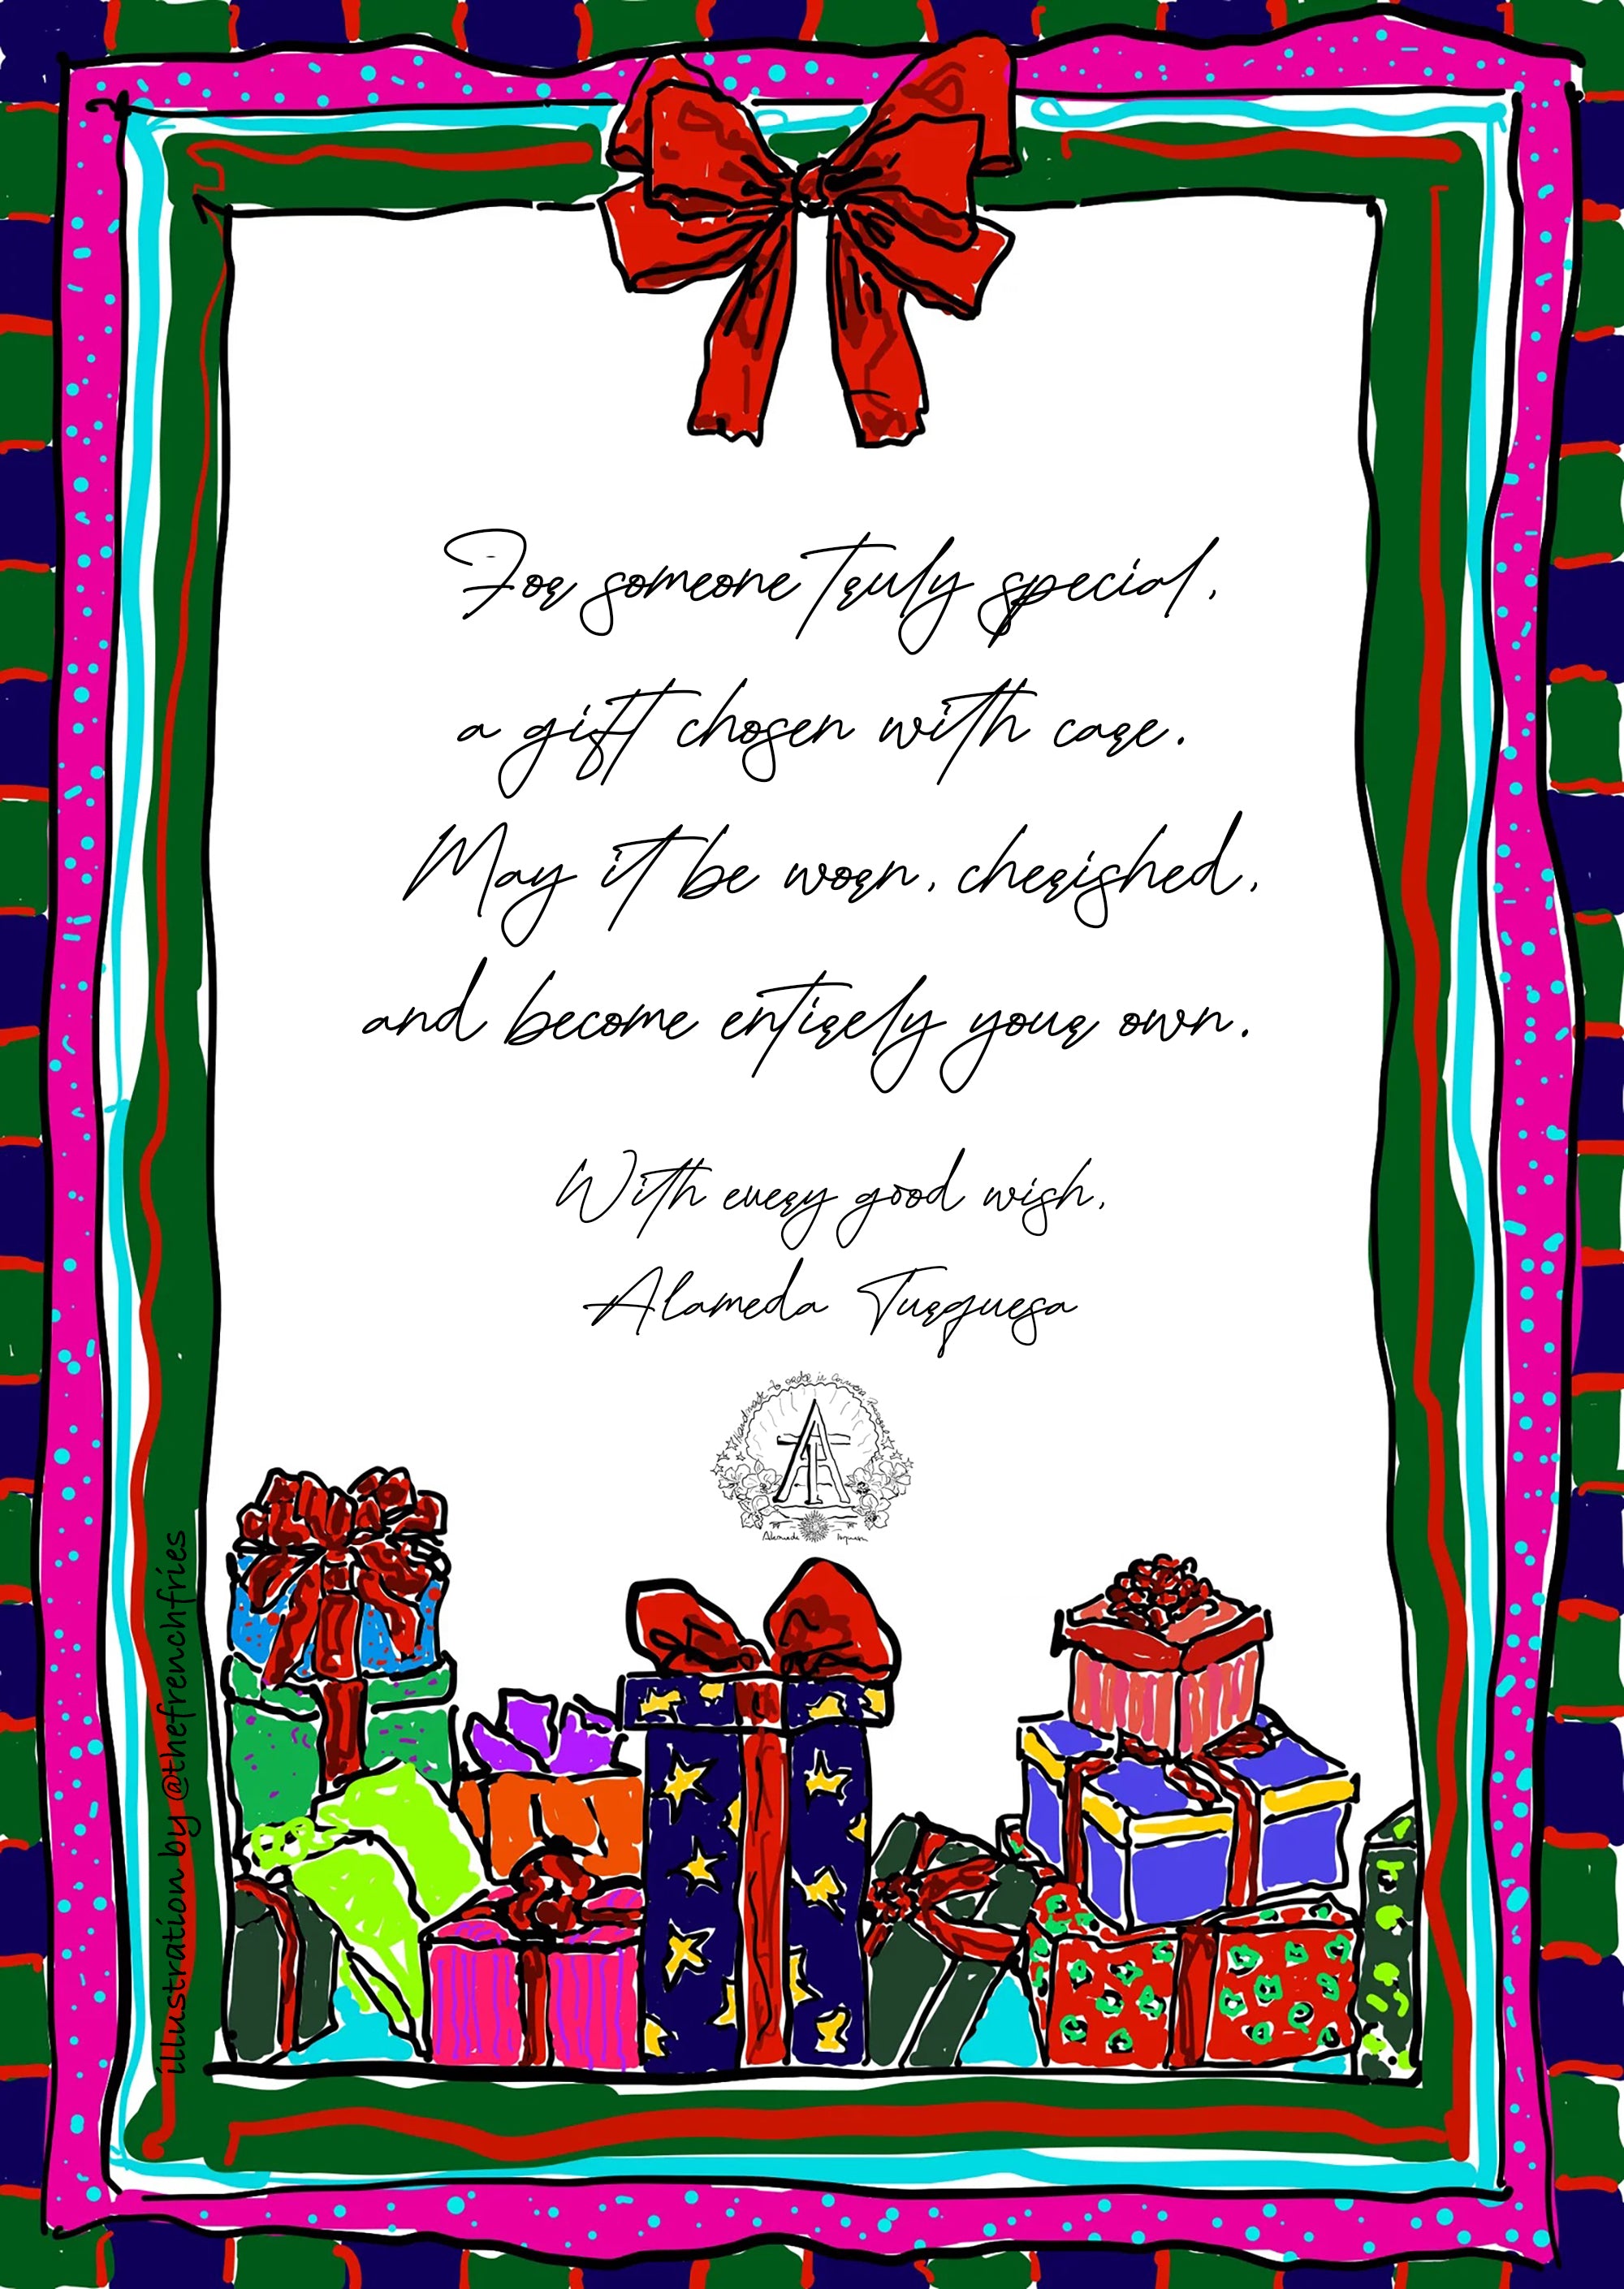 For someone truly special,
a gift chosen with care.
May it be worn, cherished,
and become entirely your own.
With every good wish,
Alameda Turquesa
Handmade to order in
AT
Alameda Turquesa
illustration by @thefrenchfries